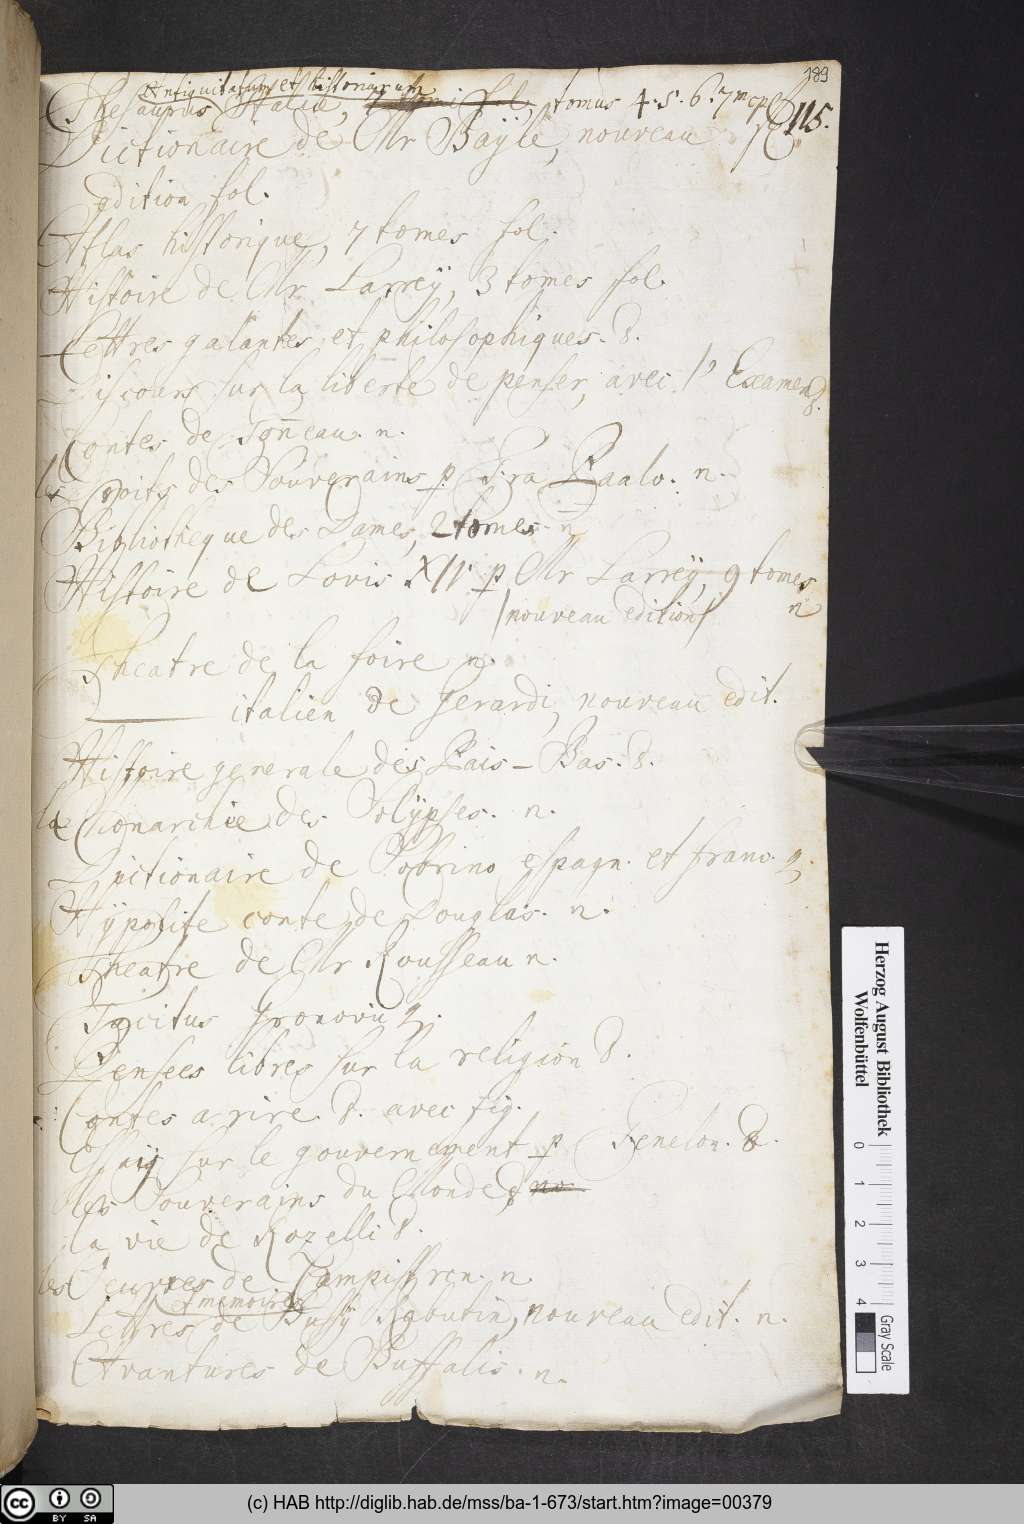 189
115.
Antiquitatum et historiarum
Thesaurus Italiæ, tomus 4. 5. 6. 7m
Dictionaire de Mr Baÿle, nouveau
edition fol.
Atlas historique, 7 tomes fol.
Histoire de Mr Larreÿ, 3 tomes fol.
Lettres galantes et philosophiques. 8.
Discours sur la liberte de penser, avec l' Examen 8.
Contes de Tonneau. n.
les Droits des Souverains p Fra Paalo. n.
Bibliotheque des Dames, 2 tomes. n
Histoire de Lovis XIV p Mr Larreÿ, 9 tomes
/nouveau edition/ n
Theatre de la foire n.
italien de Gerardi, nouveau edit.
Histoire generale des Pais-Bas. 8.
la Monarchie des Solÿpses. n.
Dictionaire de Sobrino espagn. et franc. 4.
Hÿpolite conte de Douglas. n.
Theatre de Mr Rousseau n.
Tacitus Gronovii 4.
Pensees libres sur la religion 8.
Contes a rire 8. avec fig.
Essaij sur le gouvernement p Fenelon. 8.
les Souverains du Monde
la vie de Rozelli 8.
les Oeuvres de Campistron. n.
et memoires
Lettres de Bussÿ Rabutin, nouveau edit. n.
Avantures de Buffalis. n.
Herzog August Bibliothek
Wolfenbüttel
0 1 2 3 4
Gray Scale
cc BY SA
(c) HAB http://diglib.hab.de/mss/ba-1-673/start.htm?image=00379